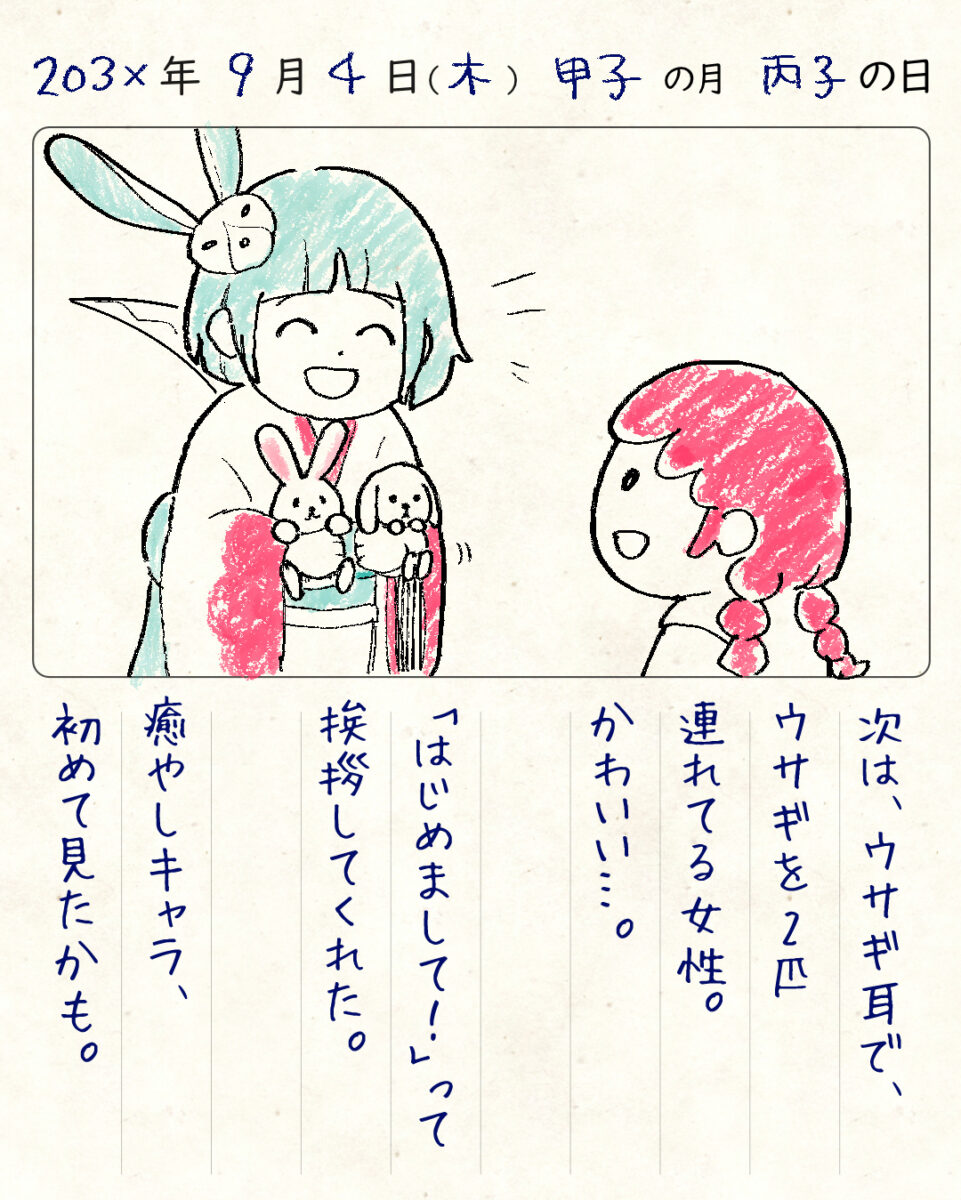 203×年 9月 4日(木) 甲子の月 丙子の日
次は、ウサギ耳で、
ウサギを2匹
連れてる女性。
かわいい…。
「はじめまして!」って
挨拶してくれた。
癒やしキャラ、
初めて見たかも。